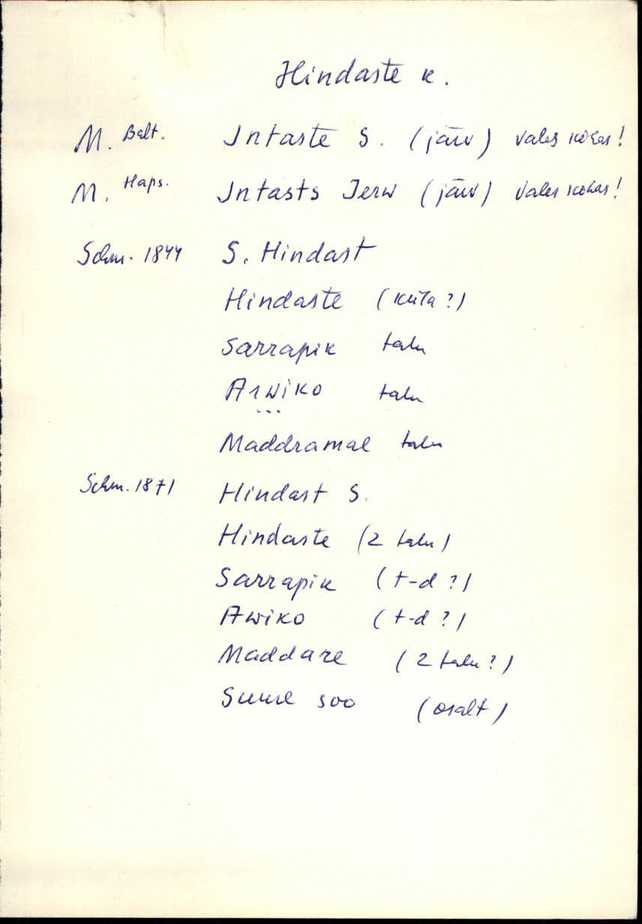 Hindaste k.
M. Balt. Intaste S. (järv) vales kohas!
M. Haps. Intasts Jerw (järv) vales kohas!
Schm. 1844 S. Hindast
Hindaste (küla?)
Sarrapik talu
Arwiko talu
Maddramae talu
Schm. 1871 Hindast S.
Hindaste (2 talu)
Sarrapik (t-d?)
Awiko (t-d?)
Maddare (2 talu?)
Suure soo (osalt)